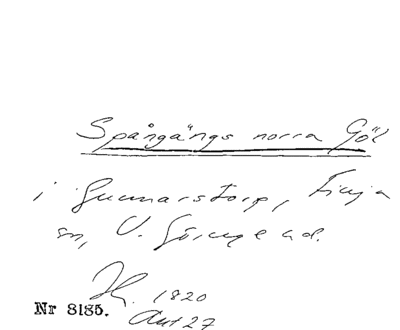 Spångängs norra Göl
i Gunnarstorp, Finja
sn, V. Göinge hd.
1820
Akt 27
Nr 8185.